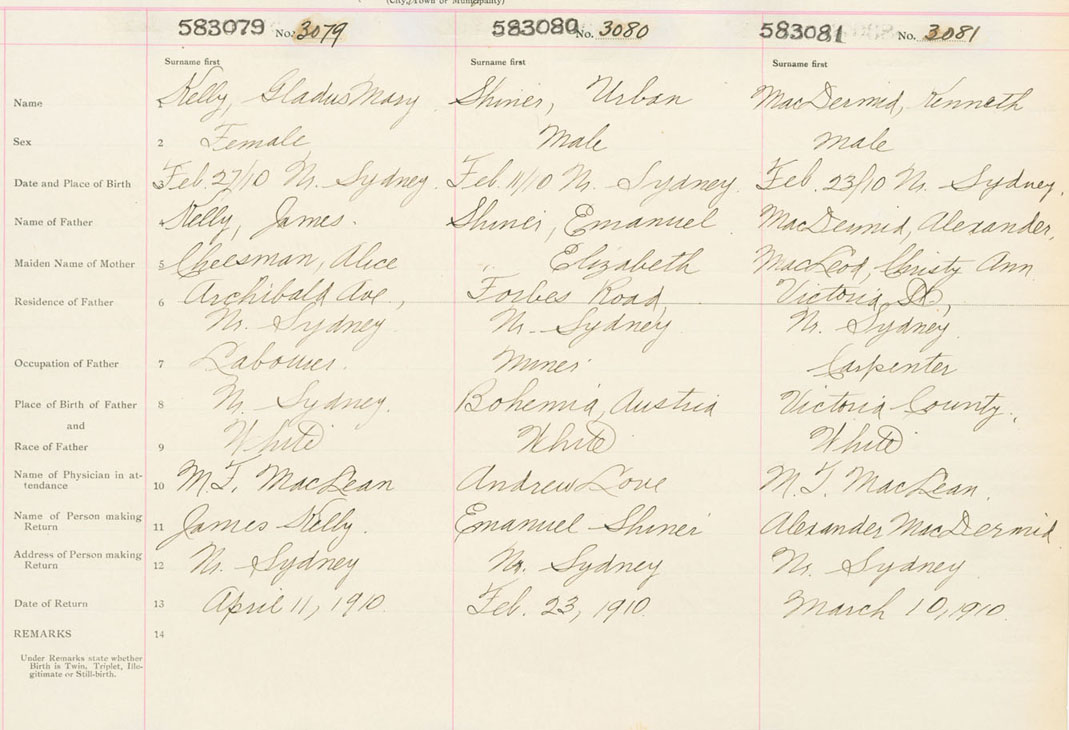 (City, Town or Municipality)
583079 No. 3079 583080 No. 3080 583081 No. 3081
Surname first Surname first Surname first
Name 1 Kelly, Gladus Mary Shiner, Urban MacDermid, Kenneth
Sex 2 Female Male Male
Date and Place of Birth 3 Feb. 27/10 N. Sydney. Feb. 11/10 N. Sydney. Feb. 23/10 N. Sydney.
Name of Father 4 Kelly, James. Shiner, Emanuel MacDermid, Alexander.
Maiden Name of Mother 5 Cheesman, Alice " Elizabeth MacLeod, Christy Ann
Residence of Father 6 Archibald Ave., Forbes Road, Victoria St.,
N. Sydney. N. Sydney. N. Sydney.
Occupation of Father 7 Labourer. Miner Carpenter
Place of Birth of Father 8 N. Sydney. Bohemia, Austria Victoria County.
and
Race of Father 9 White White White
Name of Physician in at-
tendance 10 M.T. MacLean Andrew Love M.T. MacLean.
Name of Person making
Return 11 James Kelly. Emanuel Shiner Alexander MacDermid.
Address of Person making
Return 12 N. Sydney N. Sydney N. Sydney.
Date of Return 13 April 11, 1910. Feb. 23, 1910. March 10, 1910.
REMARKS 14
Under Remarks state whether
Birth is Twin, Triplet, Ille-
gitimate or Still-birth.